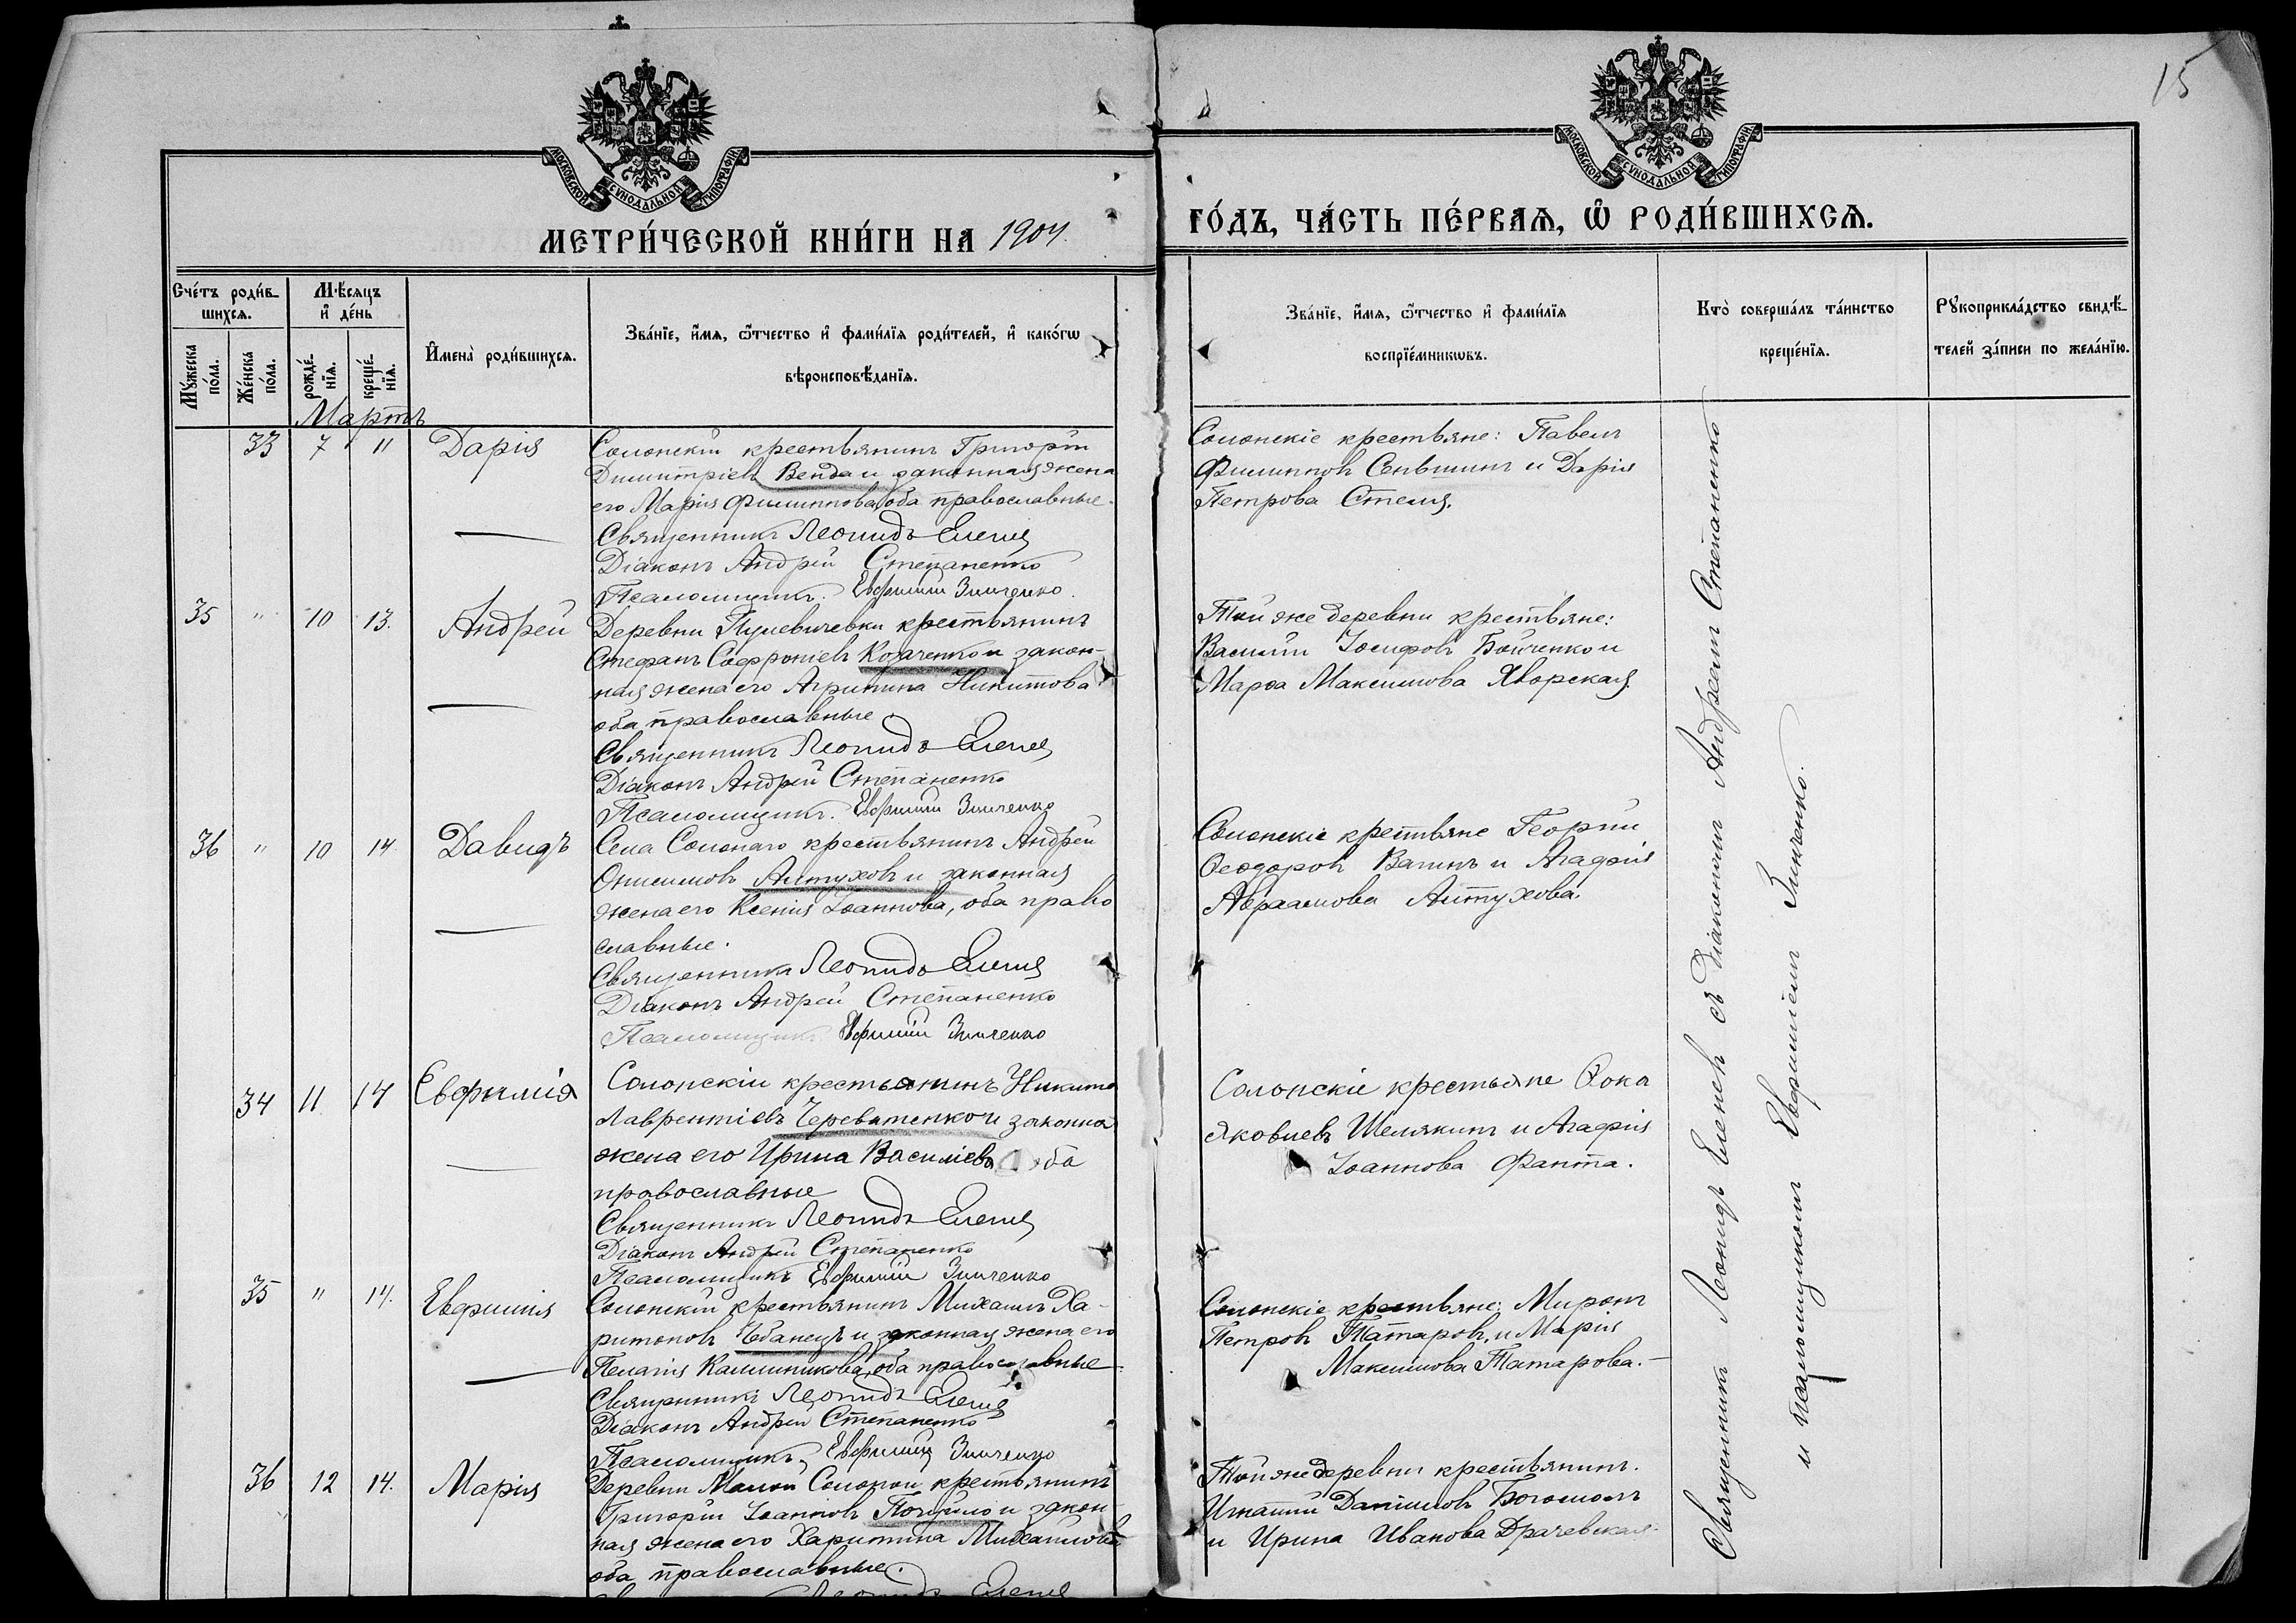 15
МОСКОВСКОЙ СѴНОДАЛЬНОЙ ТИПОГРАФІИ
МОСКОВСКОЙ СѴНОДАЛЬНОЙ ТИПОГРАФІИ
МЕТРИ́ЧЕСКОЙ КНИ́ГИ НА 1904.
ГО́ДЪ, ЧА́СТЬ ПЕ́РВАѦ, Ѽ РОДИ́ВШИХСѦ.
Сче́тъ роди́в-
шихсѧ.
Мѣ́сѧцъ
и҆ де́нь
Мꙋ́жеска
по́ла.
Же́нска
по́ла.
рожде́-
нїѧ.
креще́-
нїѧ.
И҆мена̀ роди́вшихсѧ.
Зва́нїе, и҆́мѧ, ѻ҆́тчество и҆ фами́лїѧ роди́телей, и҆ како́гѡ
вѣроисповѣ́данїѧ.
Зва́нїе, и҆́мѧ, ѻ҆́тчество и҆ фами́лїѧ
воспрїе́мникѡвъ.
Кто̀ соверша́лъ та́инство
креще́нїѧ.
Рꙋкоприкла́дство свидѣ́-
телей за́писи по жела́нїю.
Мартъ
33 7 11 Дарія
Солонскій крестьянинъ Григорій
Димитріевъ Венда и законная жена
его Марія Филиппова, оба православные.
Священникъ Леонидъ Еленевъ
Діаконъ Андрей Степаненко
Псаломщикъ Евфимій Зинченко.
Солонскіе крестьяне: Павелъ
Филипповъ Сеньшинъ и Дарія
Петрова
35 " 10 13. Андрей
Деревни крестьянинъ
Стефанъ Софроніевъ Козаченко и закон-
ная жена его Агрипина Никитова
оба православные
Священникъ Леонидъ Еленевъ
Діаконъ Андрей Степаненко
Псаломщикъ. Евфимій Зинченко
Той же деревни крестьяне:
Василій Іосифовъ Бойченко и
Марѳа Максимова Яворская.
36 " 10 14 Давидъ
Села Солонаго крестьянинъ Андрей
Онисимовъ Алтуховъ и законная
жена его Ксенія Іоаннова, оба право
славные.
Священникъ Леонидъ Еленевъ
Діаконъ Андрей Степаненко
Псаломщикъ Евфимій Зинченко
Солонскіе крестьяне Георгій
Ѳеодоровъ Вагинъ и Агафія
Авраамова Алтухова.
34 11 14 Евфимія
Солонскій крестьянинъ Никита
Лаврентіевъ Череватенко и законная
жена его Ирина Василіева оба
православные
Священникъ Леонидъ Еленевъ
Діаконъ Андрей Степаненко
Псаломщикъ Евфимій Зинченко
Солонскіе крестьяне Ѳока
Яковлевъ Шелякинъ и Агафія
Іоаннова Фанта.
35 " 14. Евфимія
Солонскій крестьянинъ Михаилъ Ха-
ритоновъ Чабанецъ и законная жена его
Пелагія Каллиникова, оба православные
Священникъ Леонидъ Еленевъ
Діаконъ Андрей Степаненко
Псаломщикъ Евфимій Зинченко
Солонскіе крестьяне: Миронъ
Петровъ Татаровъ, и Марія
Максимова Татарова.
36 12 14. Марія
Деревни Малой Солоной крестьянинъ
Григорій Іоанновъ и закон-
ная жена его Харитина Михайлова
оба православные.
Леонидъ Еленевъ
Той же деревни крестьянинъ.
Игнатій Даніиловъ Богомолъ
и Ирина Иванова Драчевская.
Священникъ Леонидъ Еленевъ съ Діакономъ Андреемъ Степаненко
и псаломщикомъ Евфиміемъ Зинченко.